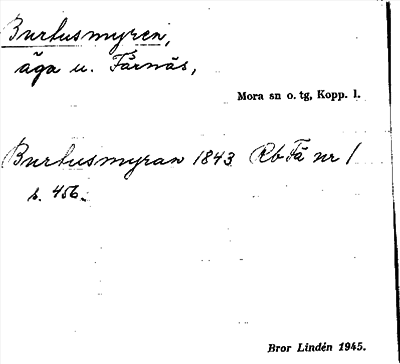 Burtusmyren,
äga u. Färnäs,
Mora sn o. tg, Kopp. l.
Burtusmyran 1843 Rb Fä nr 1
s. 456.
Bror Lindén 1945.